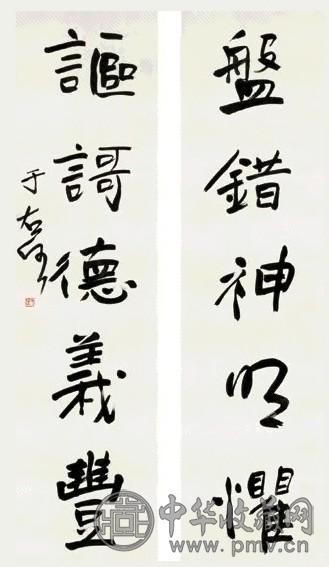 盤錯神明懼
謳謌德義豐
于右任
中华收藏网
www.pmv.cn